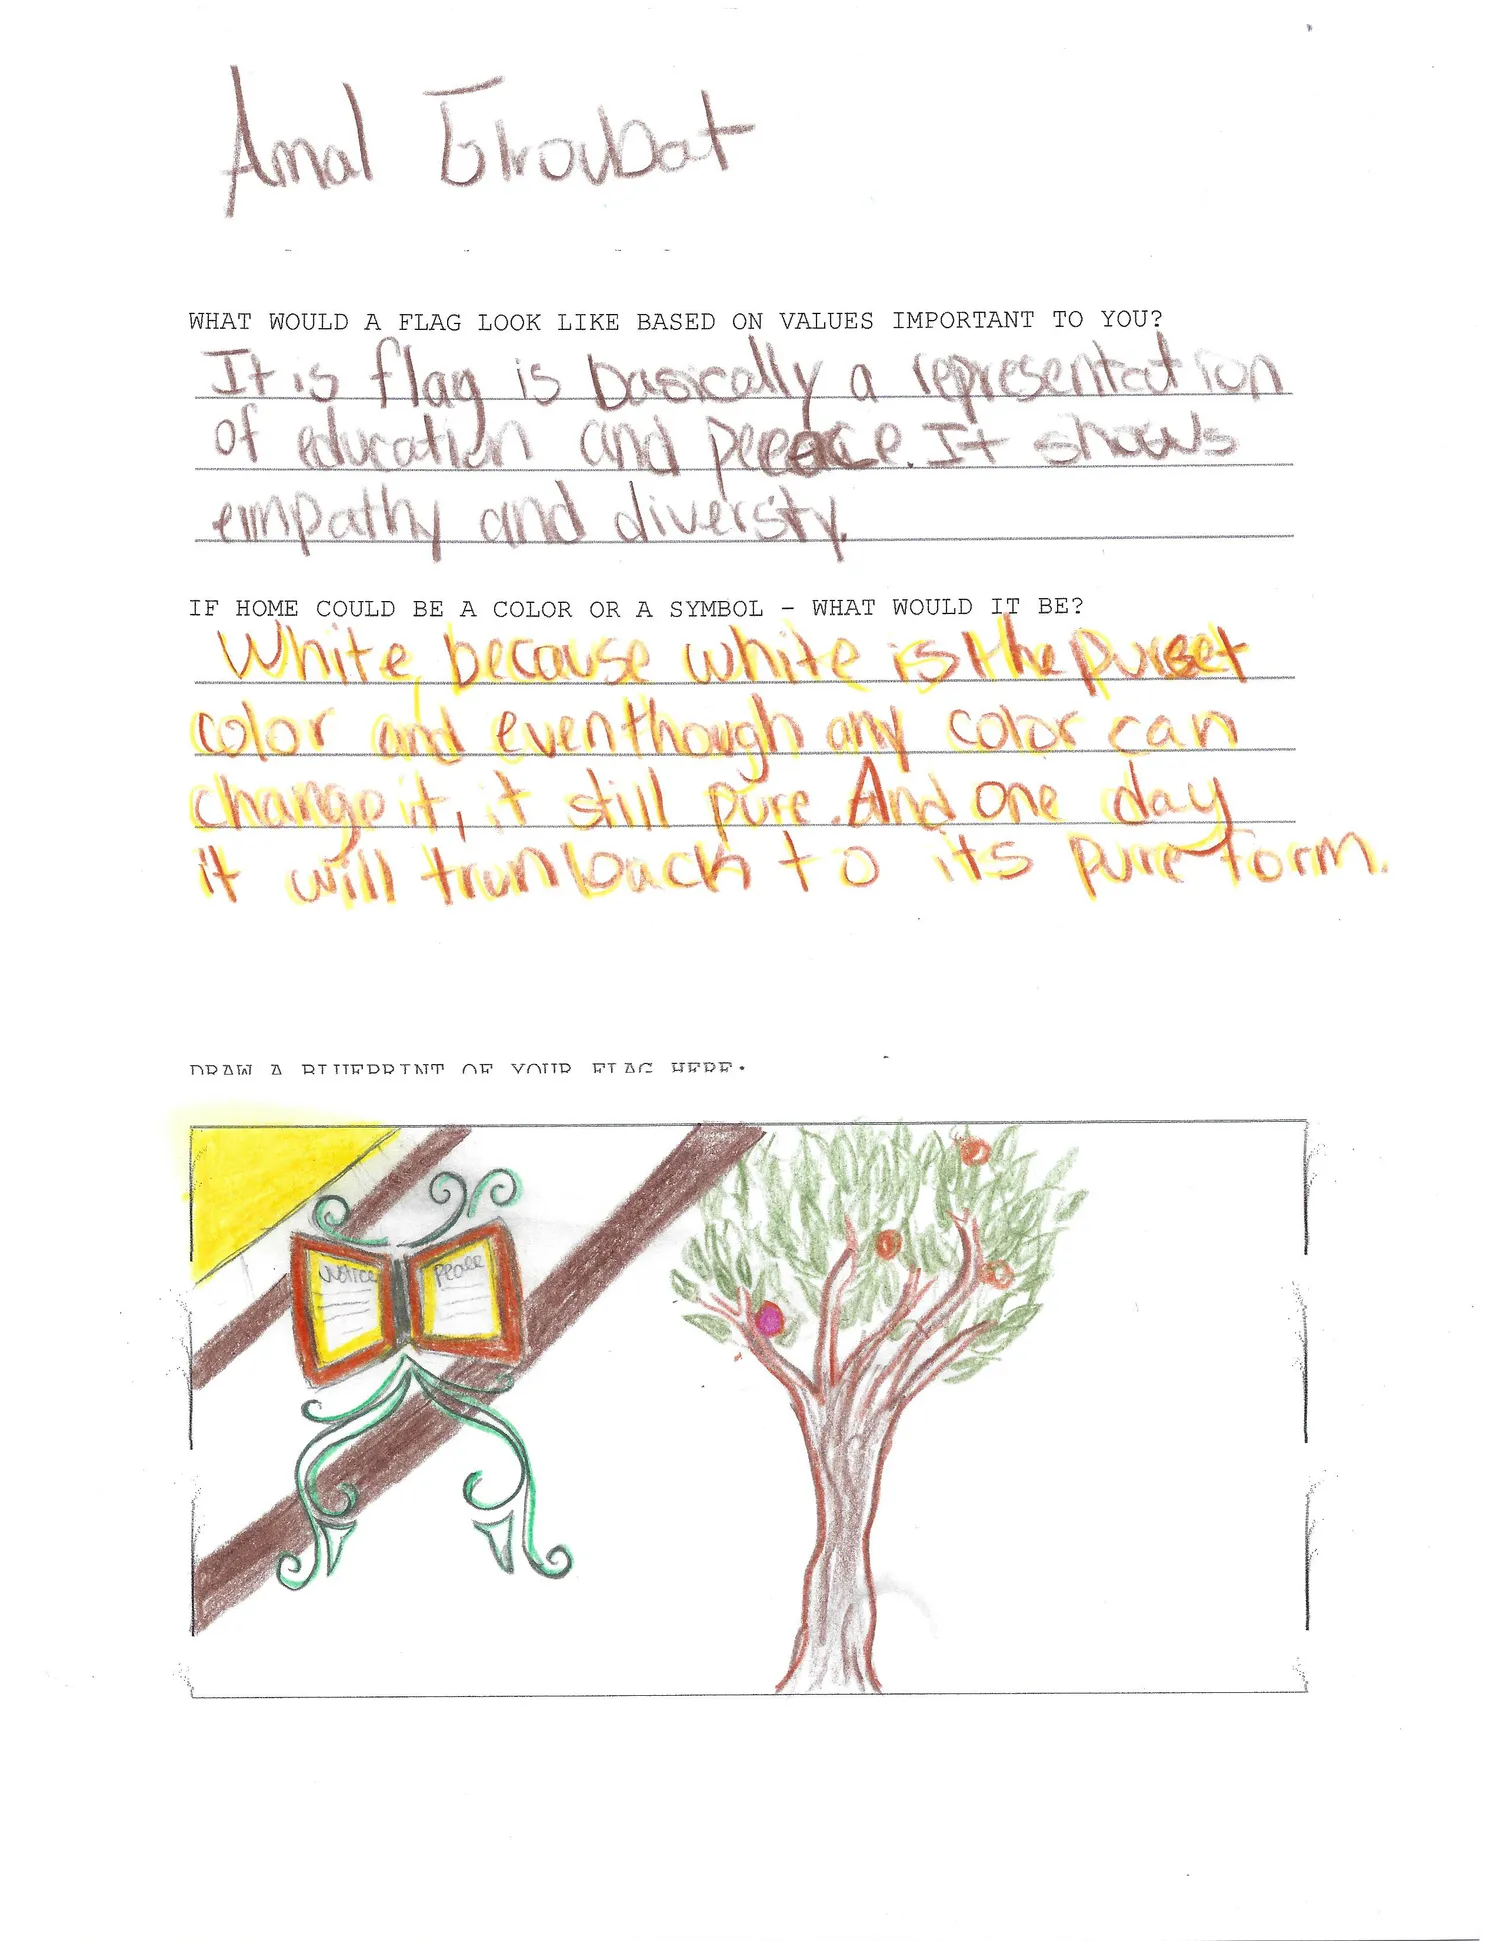 Amal Elroubat
WHAT WOULD A FLAG LOOK LIKE BASED ON VALUES IMPORTANT TO YOU?
It is flag is basically a representation
of education and peeace. It shows
empathy and diversty.
IF HOME COULD BE A COLOR OR A SYMBOL - WHAT WOULD IT BE?
White, because white is the purset
color and eventhough any color can
change it, it still pure. And one day
it will trun back to its pure form.
DRAW A BLUEPRINT OF YOUR FLAG HERE:
Notice
Peace